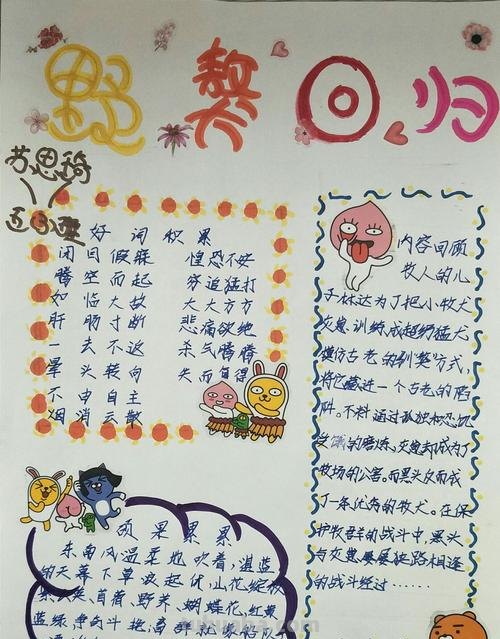 野獒回归
苏思琦
五(3)班
好词积累
闭目假寐 惶恐不安
腾空而起 穷追猛打
如临大敌 大大方方
肝肠寸断 悲痛欲绝
一去不返 杀气腾腾
晕头转向 失而复得
不由自主
烟消云散
内容回顾
牧人的儿
子林达为了把小牧犬
灰崽训练成超级猛犬
模仿古老的驯獒方式，
将它藏进一个古老的陷
阱。不料通过孤独和恐惧
的磨炼，灰崽却成为了
牧场的公害。而黑头反而成
了一条优秀的牧犬。在保
护牧群的战斗中，黑头
与灰崽屡屡狭路相逢
的战斗经过……
硕果累累
东南风温柔地吹着，湛蓝
的天幕下草波起伏，山花绽放
苜蓿、野荞、蝴蝶花，红黄
蓝绿